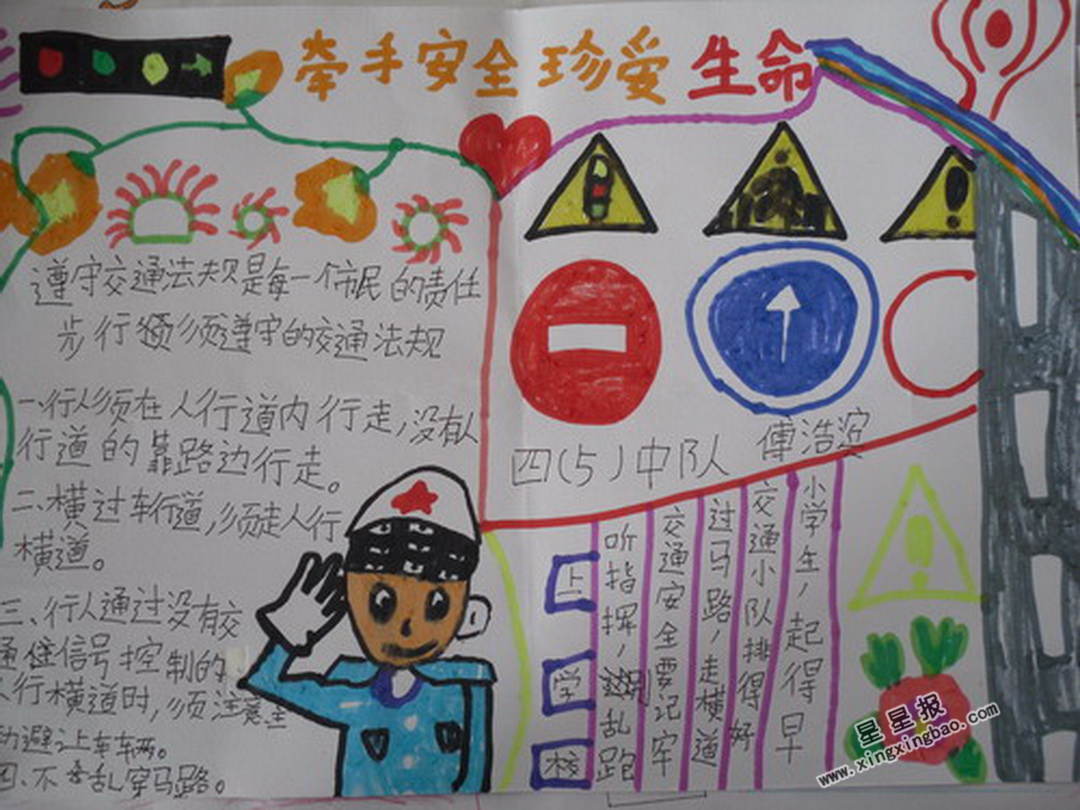 牵手安全珍爱生命
遵守交通法规是每一个市民的责任
步行须遵守的交通法规
一.行人须在人行道内行走,没有人
行道的靠路边行走。
二.横过车行道,须走人行
横道。
三、行人通过没有交
通信号控制的
人行横道时,须注意主
动避让车车辆。
四.不乱穿马路。
四(5)中队 傅浩滨
小学生,起得早
交通小队排得好
过马路,走横道
交通安全要记牢
听指挥,别乱跑
上学校
星星报
www.xingxingbao.com